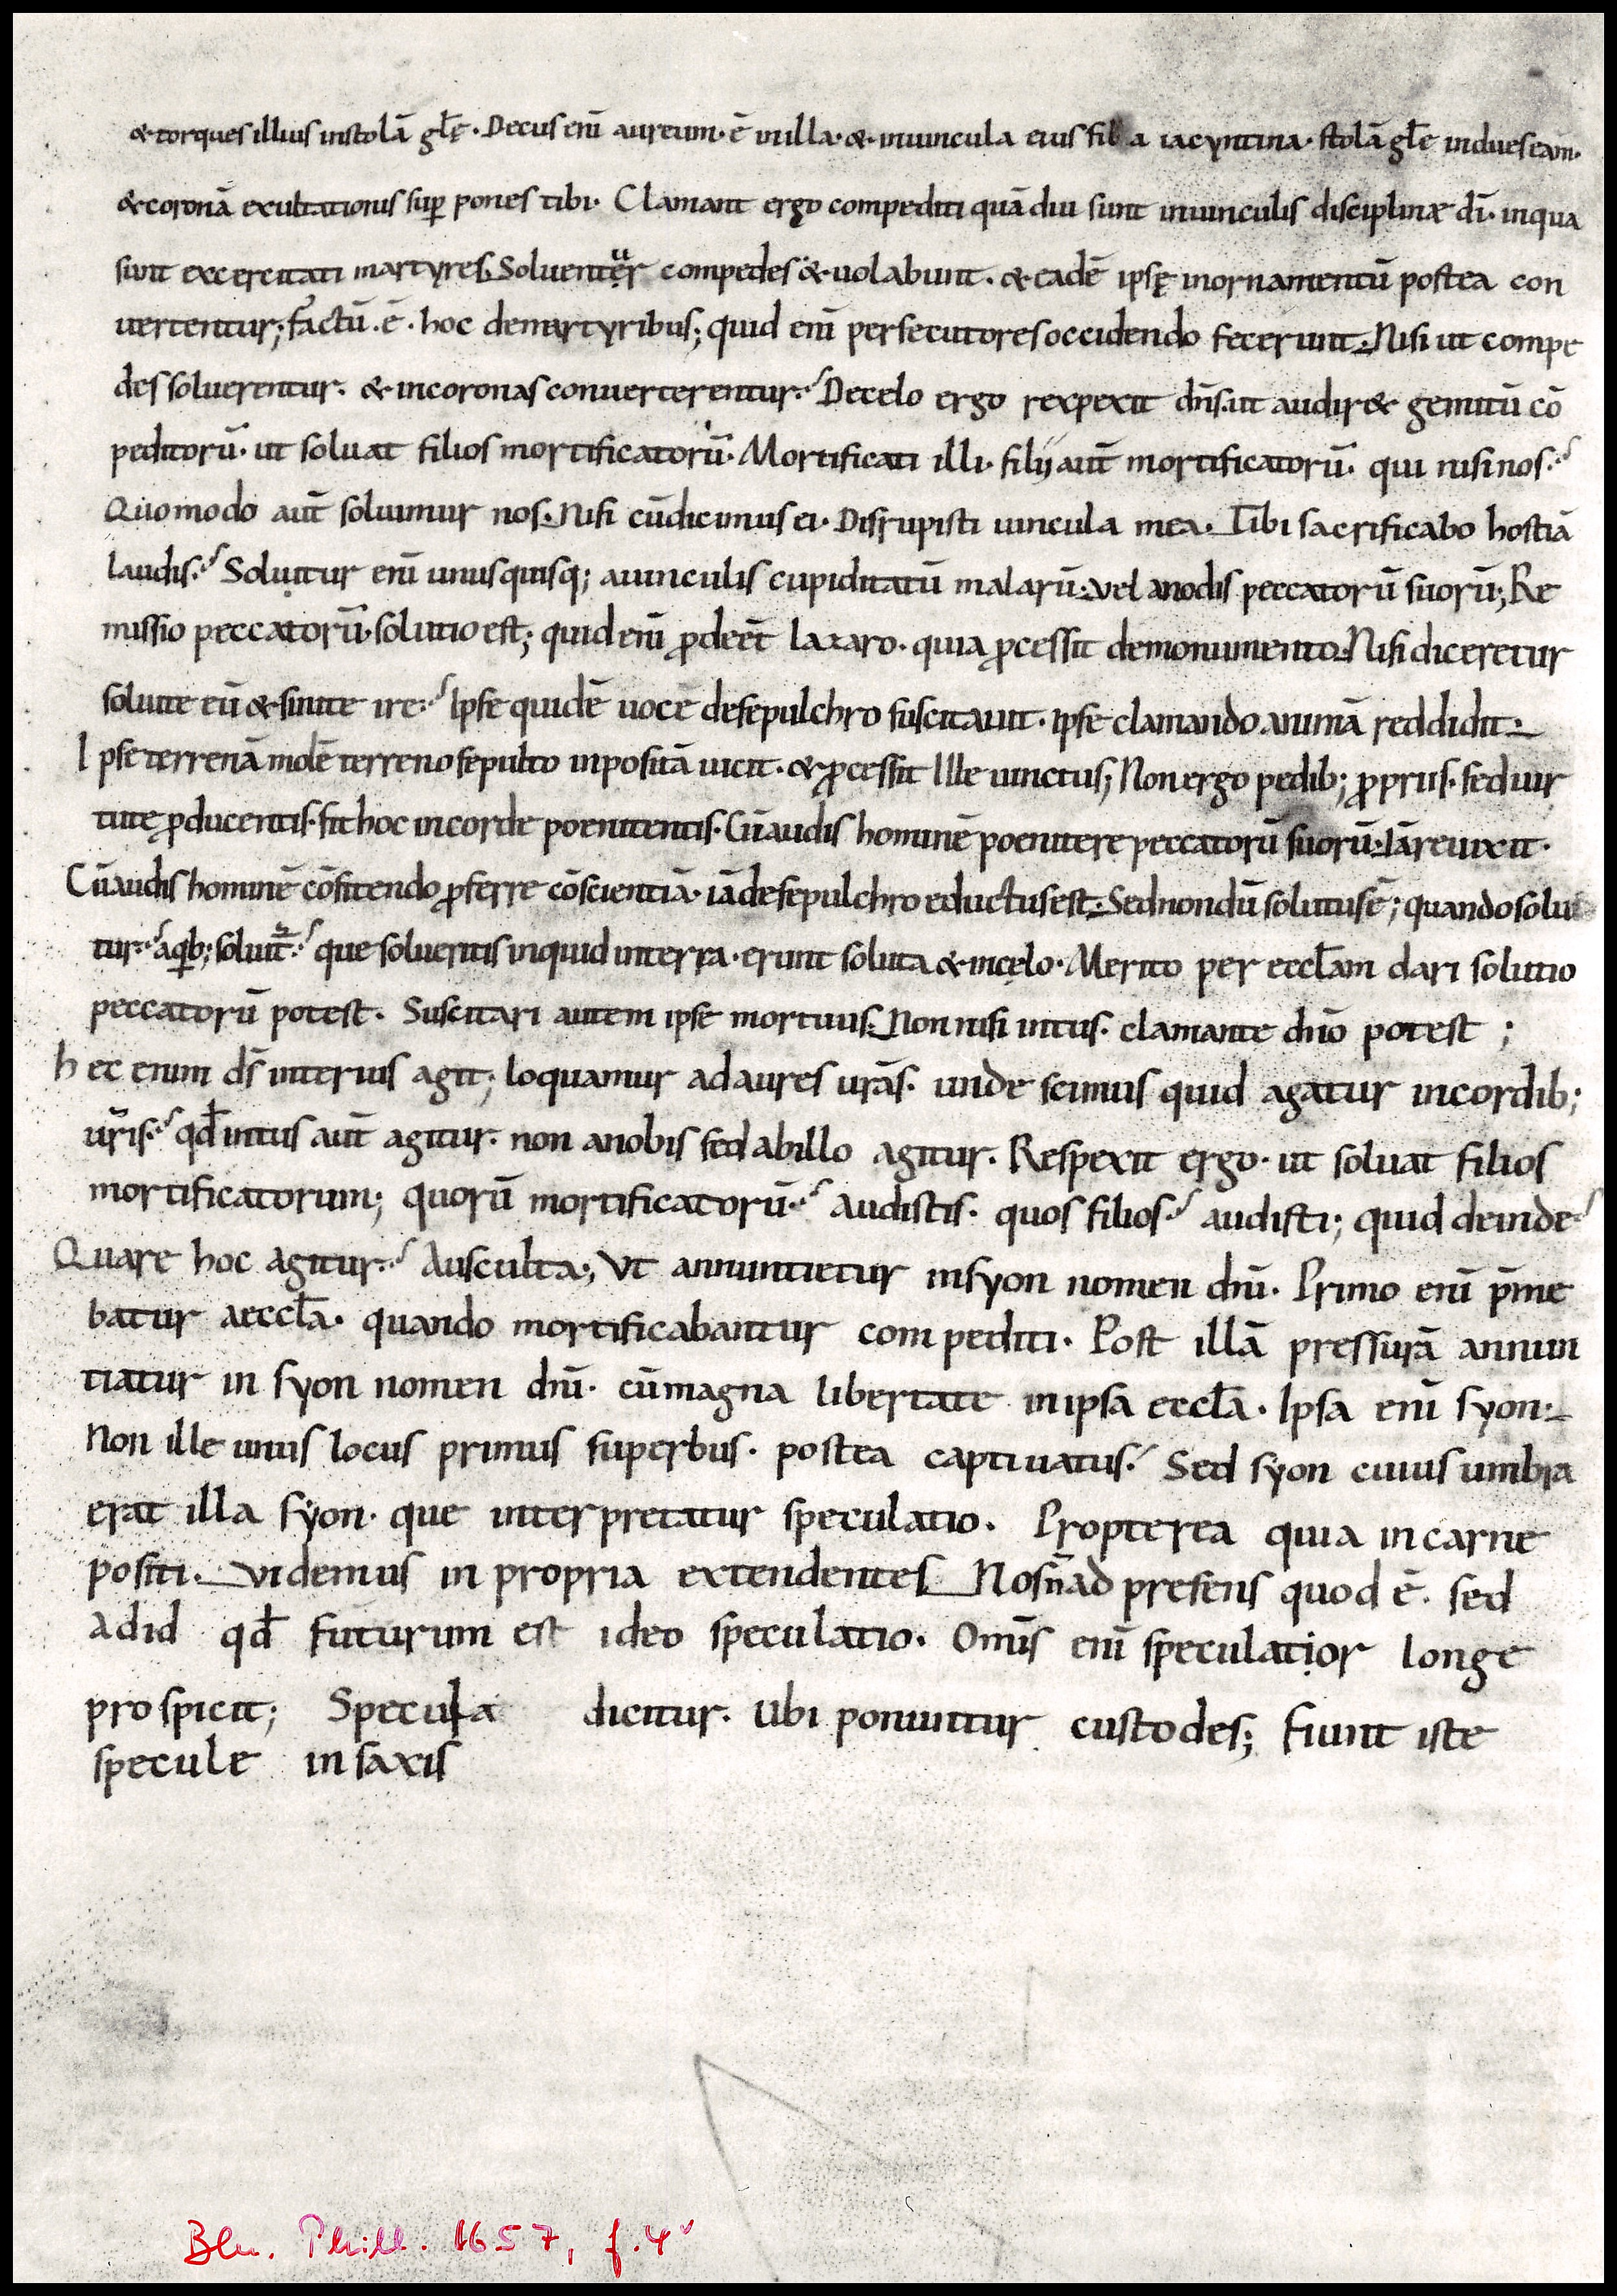 & torques illius instolā gl̄ę. Decus eni̅ aureum. ē inilla. & inuincula eius fila iacyntina. stolā gl̄e indueseam.
& coronā exultationis sup̱ pones tibi. Clamant ergo compediti quā diu sunt inuinculis disciplinæ dī. inqua
sunt excercitati martyres. Soluentur compedes & uolabunt. & eadē ipsę inornamentū postea con
uertentur; factū. ē. hoc demartyribus; quid enī persecutores occidendo fecerunt. Nisi ut compe
des soluerentur. & incoronas conuerterentur. Decelo ergo rexpexit dn̄s. ut audir& gemitū cō
peditorū. ut soluat filios mortificatorū. Mortificati illi. filii aut̄ mortificatorū. qui nisinos.
Quomodo aut̄ soluimur nos. Nisi cū dicimus ei. Disrupisti uincula mea. Tibi sacrificabo hostiā
laudis. Soluitur enī unusquisq; auinculis cupiditatū malarū. vel anodis peccatorū suorū; Re
missio peccatorū. solutio est; quid enī ꝓdeēt lazaro. quia ꝓcessit demonumento. Nisi diceretur
soluite eū & sinite ire. Ipse quidē uocē desepulchro suscitauit. ipse clamando animā reddidit.
Ipse terrenā molē terreno sepulto inpositā uicit. & ꝓcessit Ille uinctus; Non ergo pedib; ꝓpriis. sed uir
tute ꝓducentis. fit hoc incorde poenitentis. Cū audis hominē poenitere peccatorū suorū. Iā reuixit.
Cū audis hominē cōfitendo ꝓferre cōscientiā. iā desepulchro eductus est. Sed nondū solutus ē; quando solui
tur. aq̱ib; soluit̄. que solueritis inquid interra. erunt soluta & incęlo. Merito per eccl̄am dari solutio
peccatorū potest. Suscitari autem ipse mortuus. Non nisi intus. clamante dn̄o potest ;
hec enim dš interius agit; loquamur ad aures urā̄s. unde scimus quid agatur incordib;
ur̄is. qd̄ intus aut̄ agitur. non anobis sed abillo agitur. Respexit ergo. ut soluat filios
mortificatorum; quorū mortificatorū. Audistis. quos filios. audisti; quid deinde
Quare hoc agitur. Ausculta; Ut annuntietur insyon nomen dn̄i. Primo enī p̄me
batur aeccl̄a. quando mortificabantur compediti. Post illā pressurā annun
tiatur in syon nomen dn̄i. cū magna libertate inipsa eccl̄a. Ipsa enī syon.
Non ille unus locus primus superbus. postea captiuatus. Sed syon cuius umbra
erat illa sẏon. que interpretatur speculatio. Propterea quia in carne
positi. videmus in propria extendentes Nos n̄ ad presens quod ē. sed
ad id qd̄ futurum est ideo speculatio. Omīs enī speculatịor longe
prospicit; Specula dicitur. Ubi ponuntur custodes; fiunt iste
specule in saxis
Bln. Phill. 1657, f. 4v